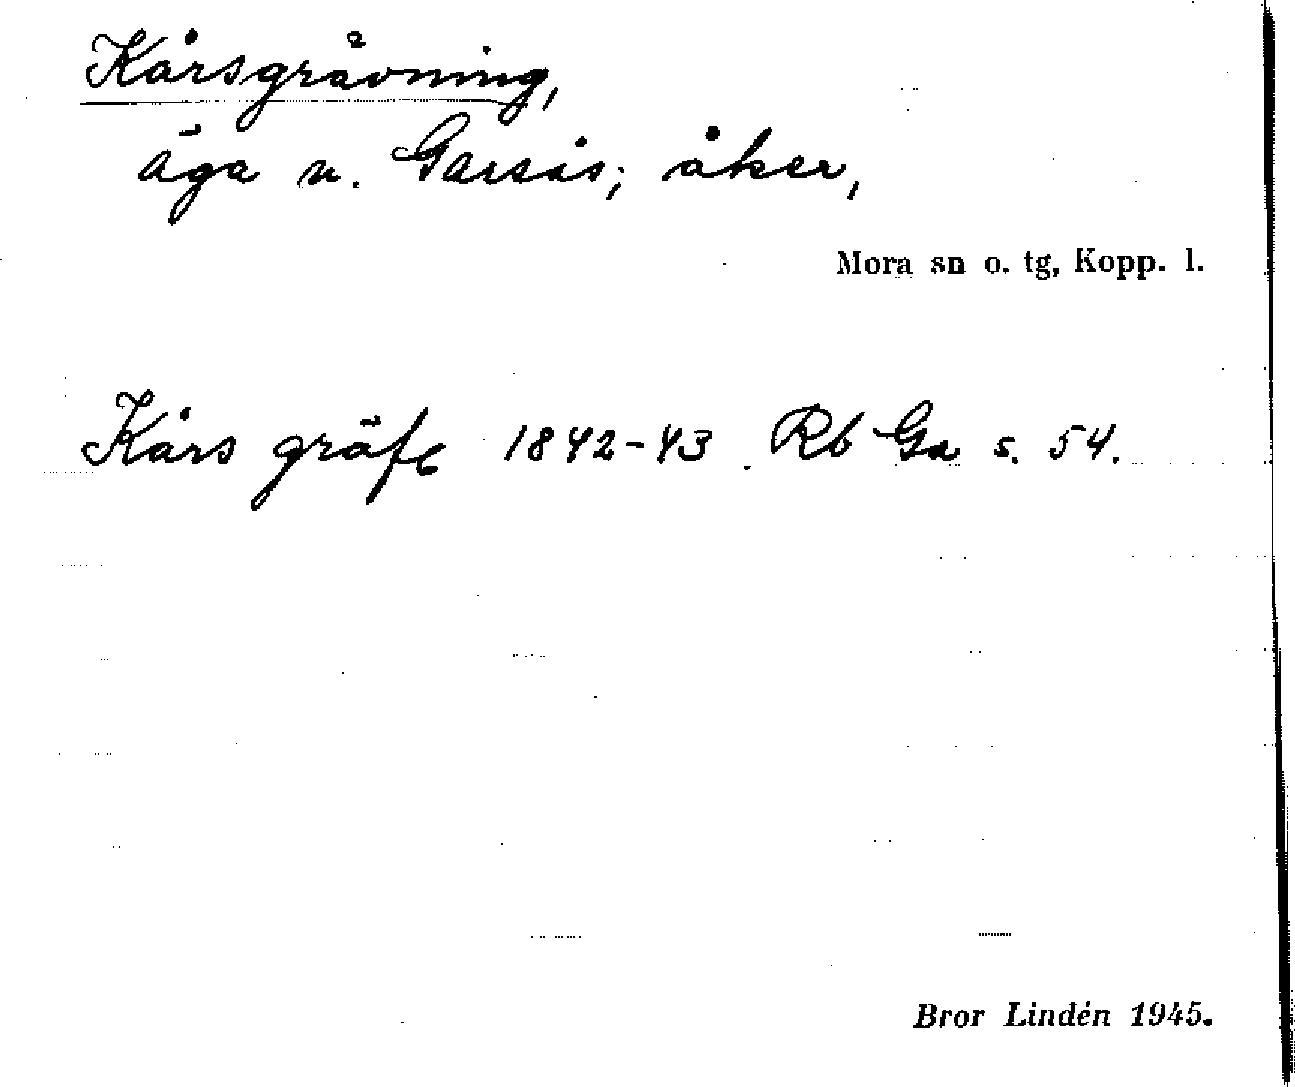 Kårsgrävning,
äga n. Garsås; åker,
Mora sn o. tg, Kopp. l.
Kårs gräfe 1842-43 Rb Ga s. 54.
Bror Lindén 1945.